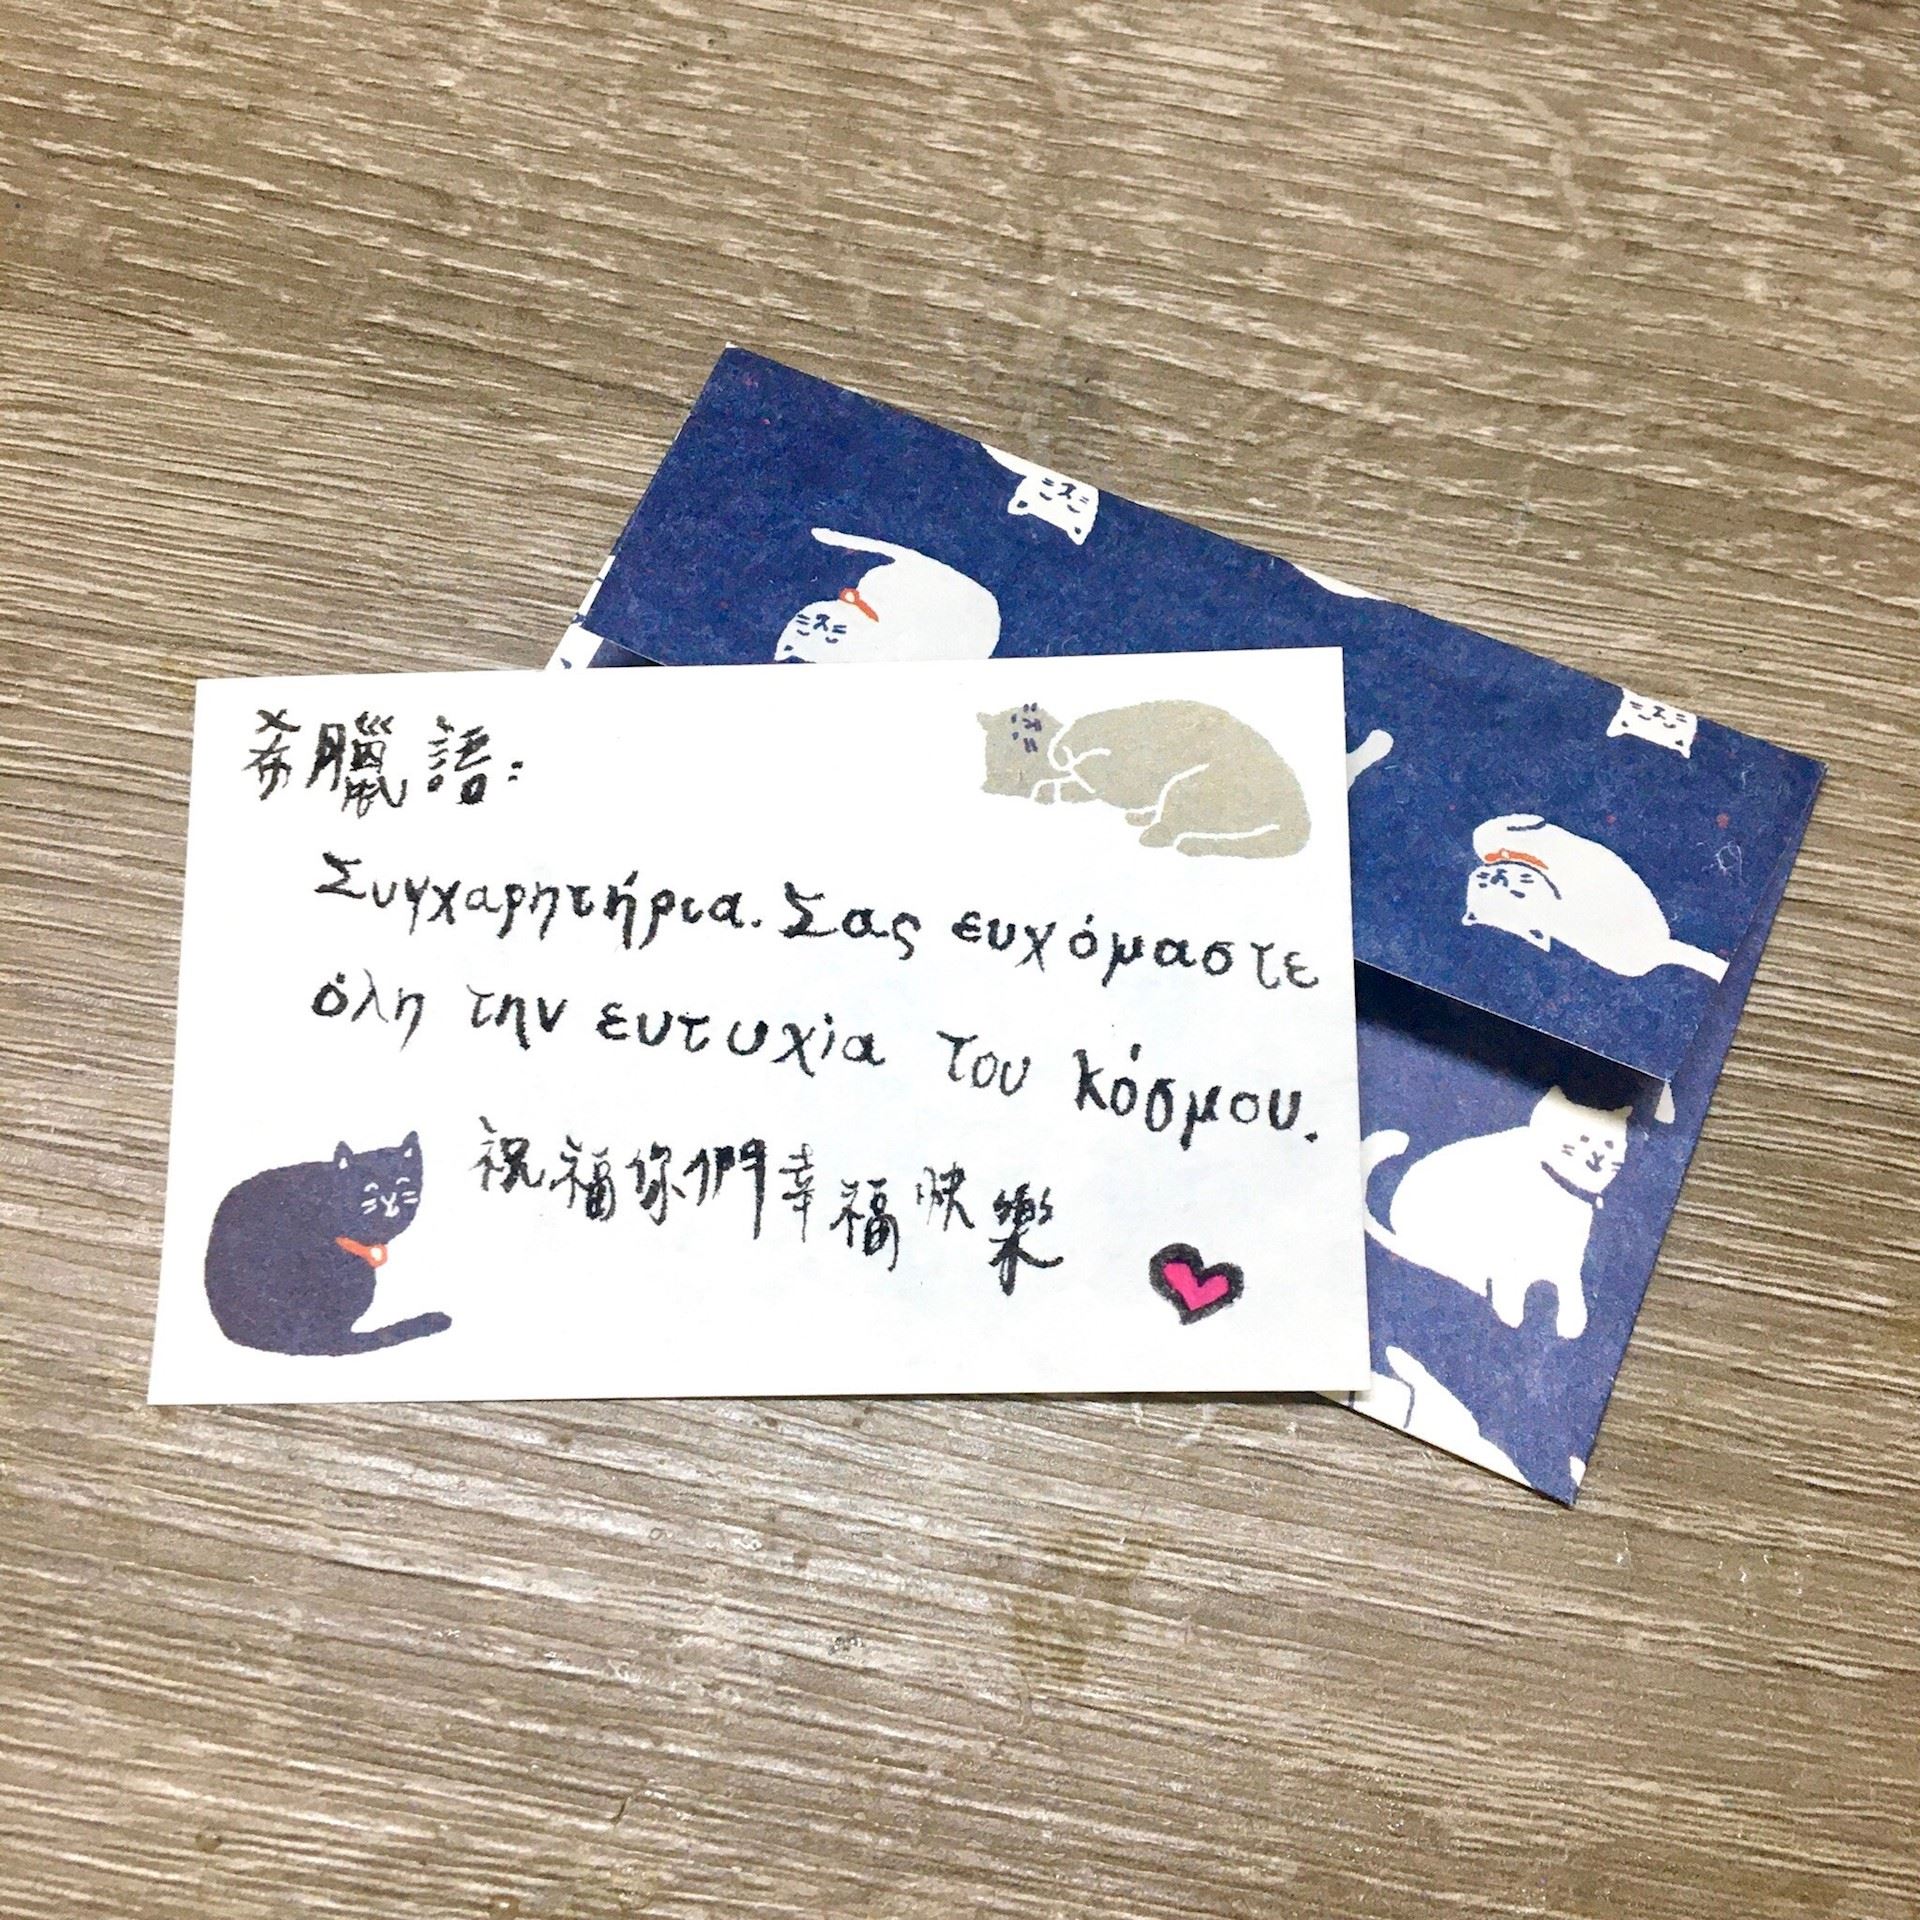 希臘語：
Συγχαρητήρια. Σας ευχόμαστε
όλη την ευτυχία του κόσμου.
祝福你們幸福快樂